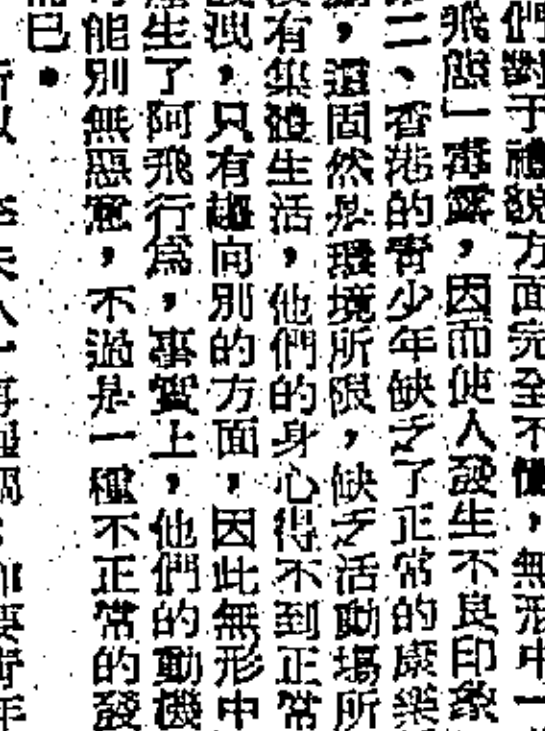 們對于禮貌方面完全不懂，無形中一
飛態一畢露，因而使人發生不良印象
二、香港的青少年缺乏了正常的康樂
，還固然是環境所限，缺乏活動場所
沒有集體生活，他們的身心得不到正常
洩，只有趨向別的方面，因此無形中
產生了阿飛行爲，事實上，他們的動機
能別無惡意，不過是一種不正常的發
而已。